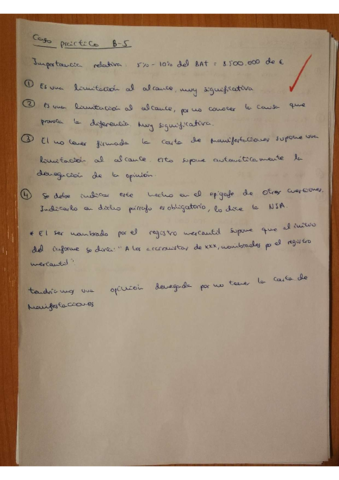 Caso práctico B-5
Importancia relativa 5% - 10% del BAT = 1.500.000 de €
① Es una limitación al alcance, muy significativa
② Es una limitación al alcance, por no conocer la causa que
provoca la diferencia muy significativa
③ El no tener firmada la carta de manifestaciones supone una
limitación al alcance esto supone automáticamente la
denegación de la opinión.
④ Se debe indicar este hecho en el epígrafe de otras cuestiones.
Indicarlo en dicho párrafo es obligatorio, lo dice la NIA
* El ser nombrado por el registro mercantil supone que al inicio
del informe se dirá: "A los accionistas de XXX, nombrados por el registro
mercantil"
tendríamos una opinión denegada por no tener la carta de
manifestaciones